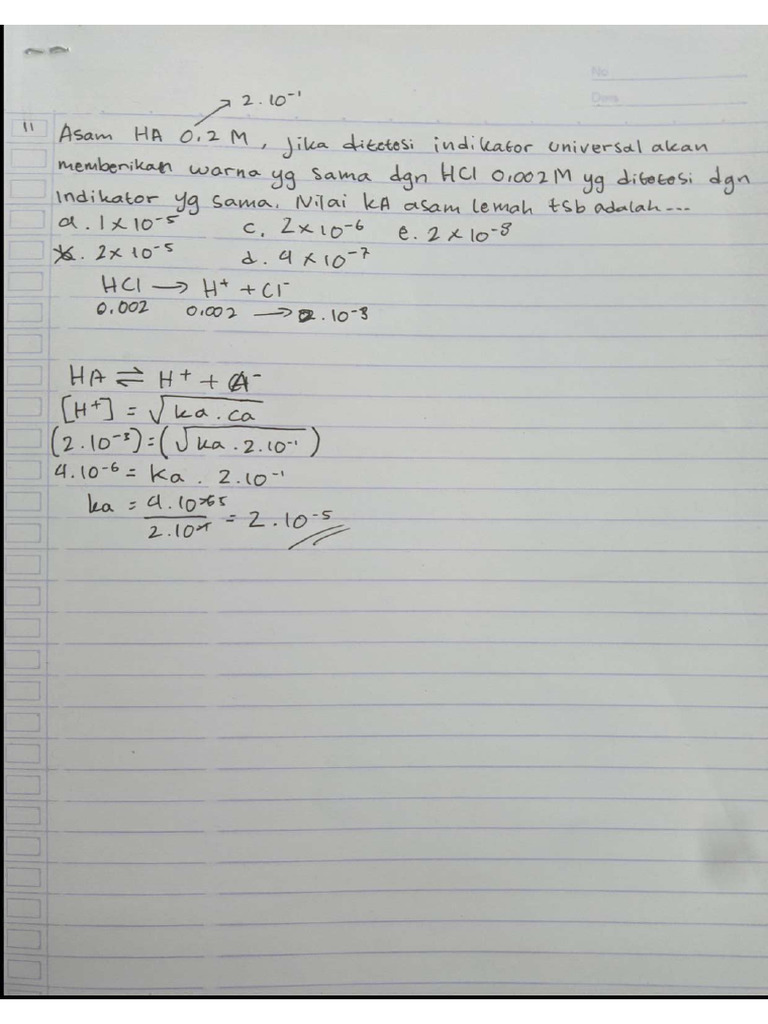 No
Date
2.10⁻¹
11 Asam HA 0.2 M, jika ditetesi indikator universal akan
memberikan warna yg sama dgn HCl 0,002 M yg ditetesi dgn
indikator yg sama. Nilai kA asam lemah tsb adalah...
a. 1 x 10⁻⁵ c. 2 x 10⁻⁶ e. 2 x 10⁻⁸
b. 2 x 10⁻⁵ d. 4 x 10⁻⁷
HCl → H⁺ + Cl⁻
0.002 0.002 → 2.10⁻³
HA ⇌ H⁺ + A⁻
[H⁺] = √ka.ca
(2.10⁻³) = (√ka.2.10⁻¹)
4.10⁻⁶ = Ka . 2.10⁻¹
ka = 4.10 / 2.10 = 2.10⁻⁵